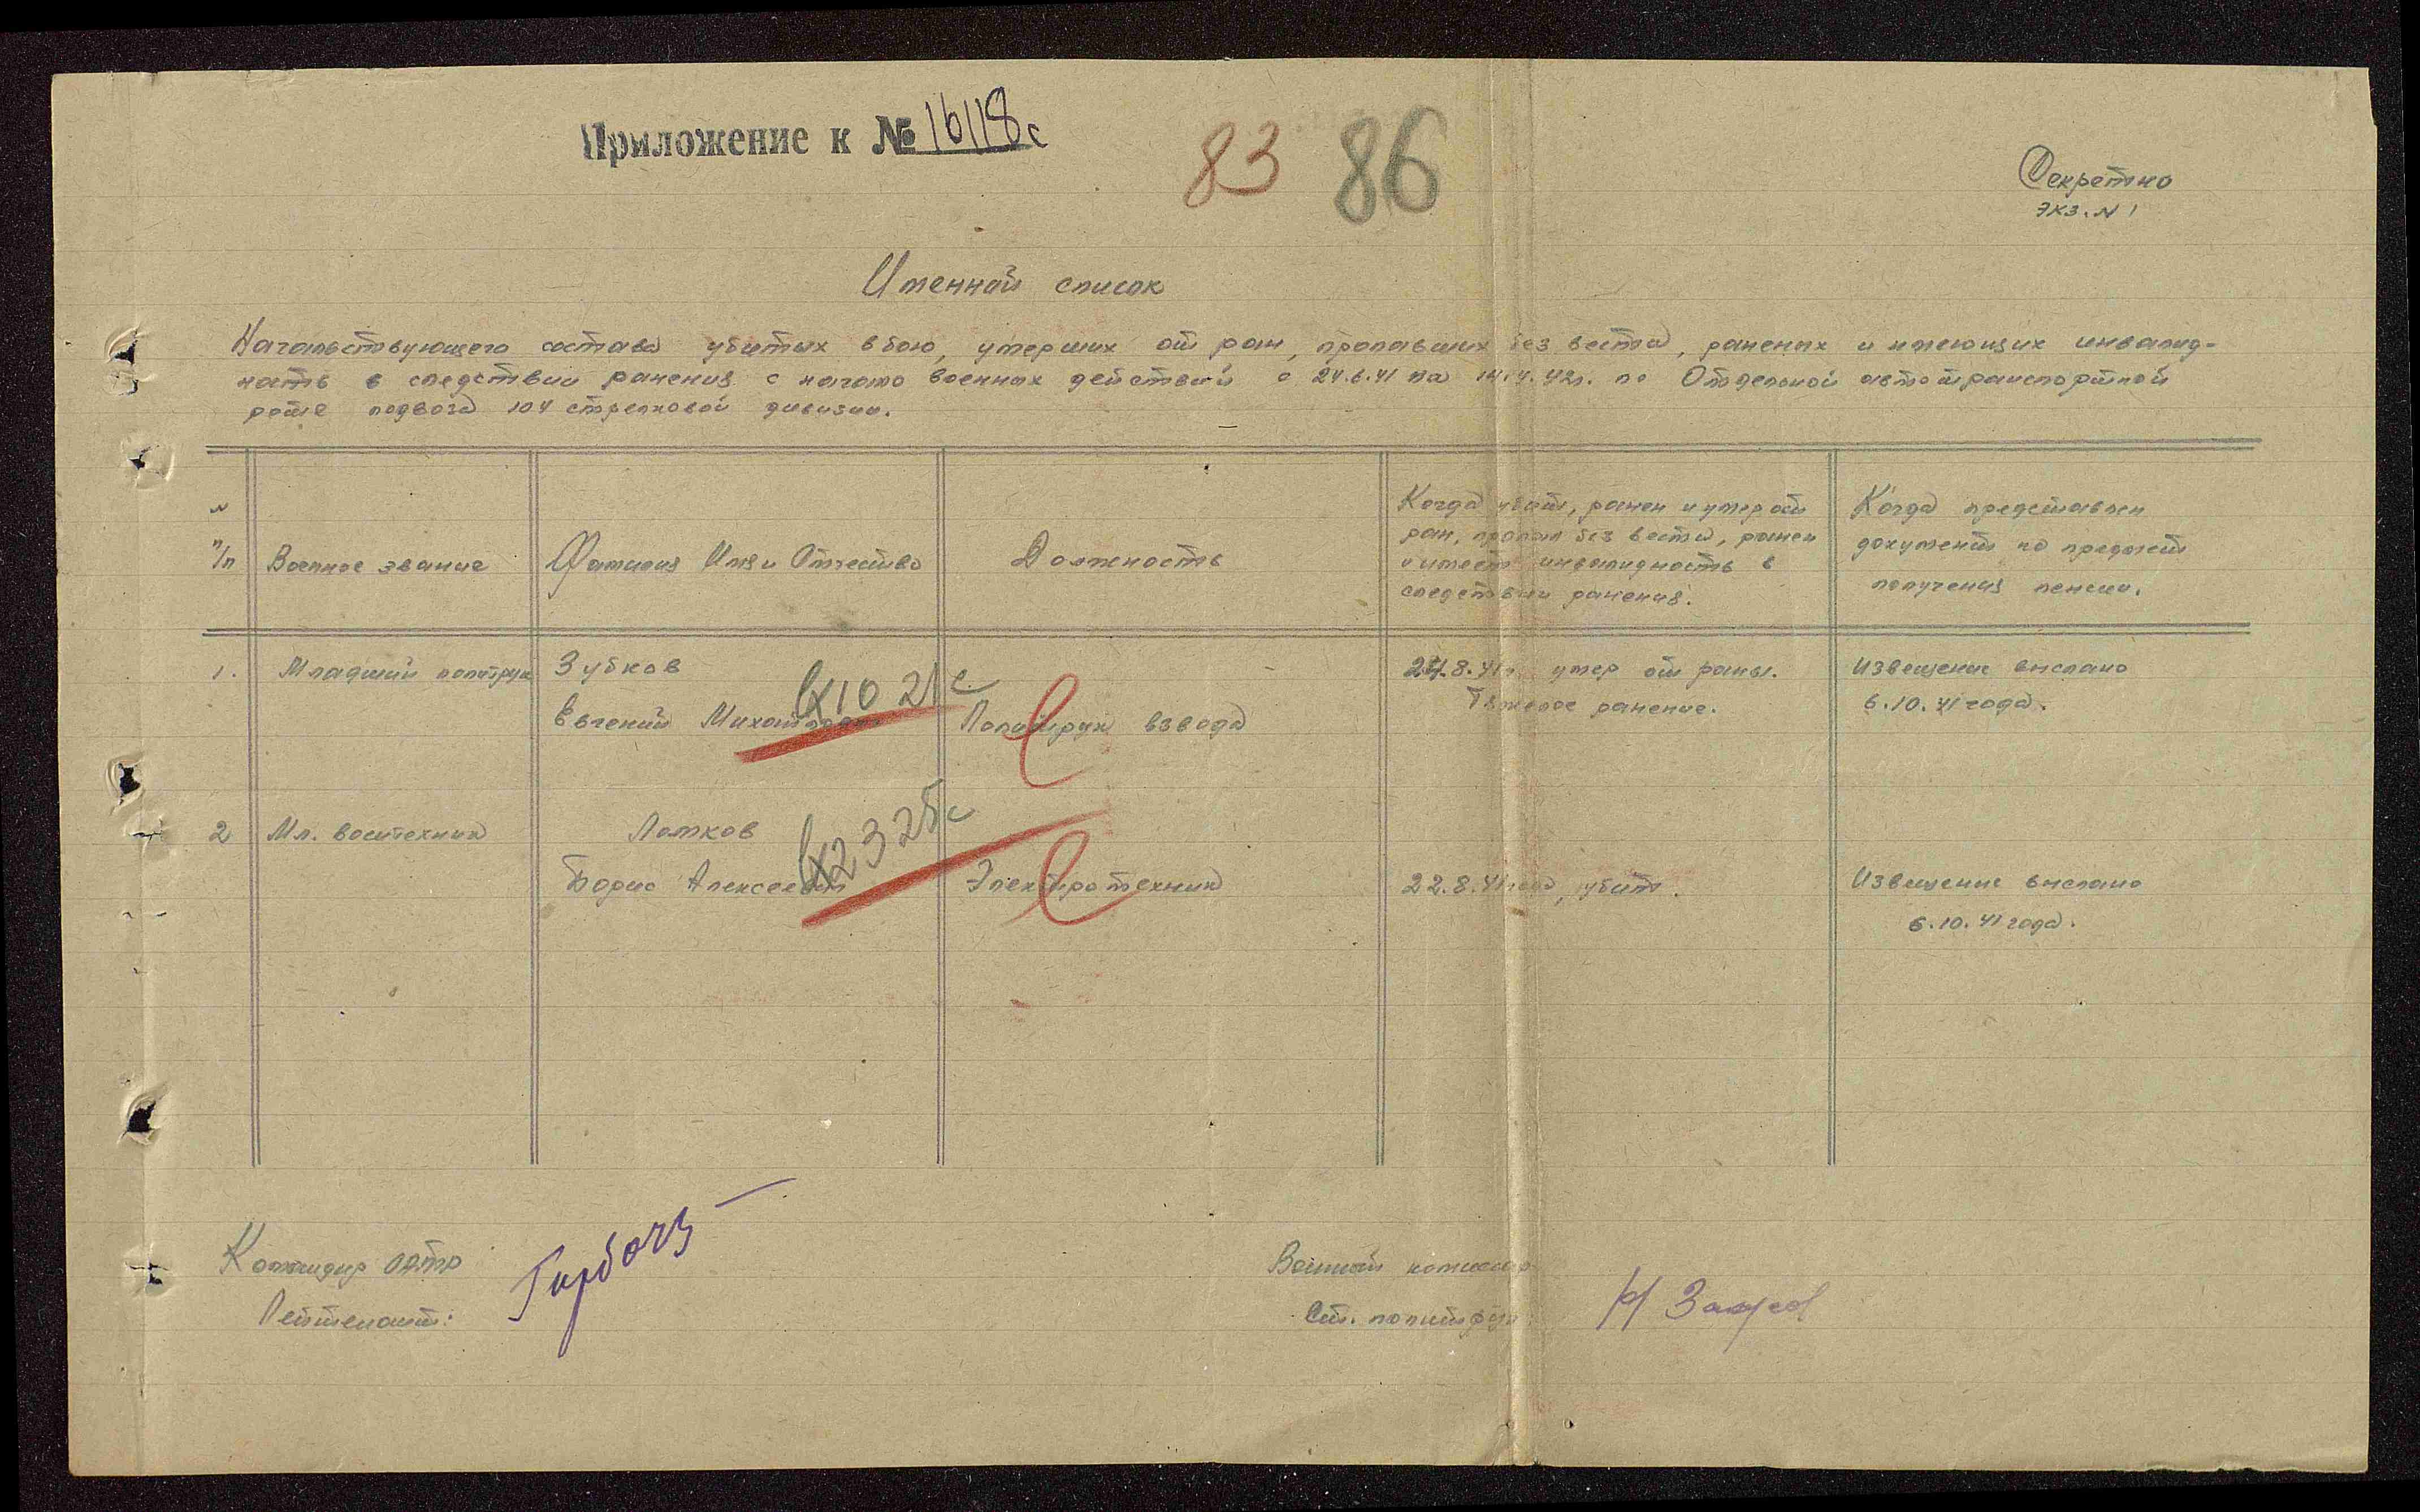 Приложение к № 16118с
83 86
Секретно
экз. N 1
Именной список
Начальствующего состава убитых в бою, умерших от ран, пропавших без вести, раненых и имеющих инвалид-
ность в следствии ранения с начало военных действий с 24.6.41 по 14.4.42г. по Отдельной автотранспортной
роте подвоза 104 стрелковой дивизии.
N п/п
Военное звание
Фамилия Имя и Отчество
Должность
Когда убит, ранен и умер от
ран, пропал без вести, ранен
и имеет инвалидность в
следствии ранения.
Когда представлен
документ на предмет
получения пенсии.
1. Младший политрук Зубков 24.8.41г. умер от раны. Извещение выслано
Евгений Политрук взвода Тяжелое ранение. 6.10.41 года.
вх 10 21с
2 Мл. воентехник Ломков
вх 2325с
Борис Алексеевич Электротехник 22.8.41 года, убит. Извещение выслано
6.10.41 года.
Командир ОАТР
Лейтенант:
Военный комиссар
Ст. политрук: